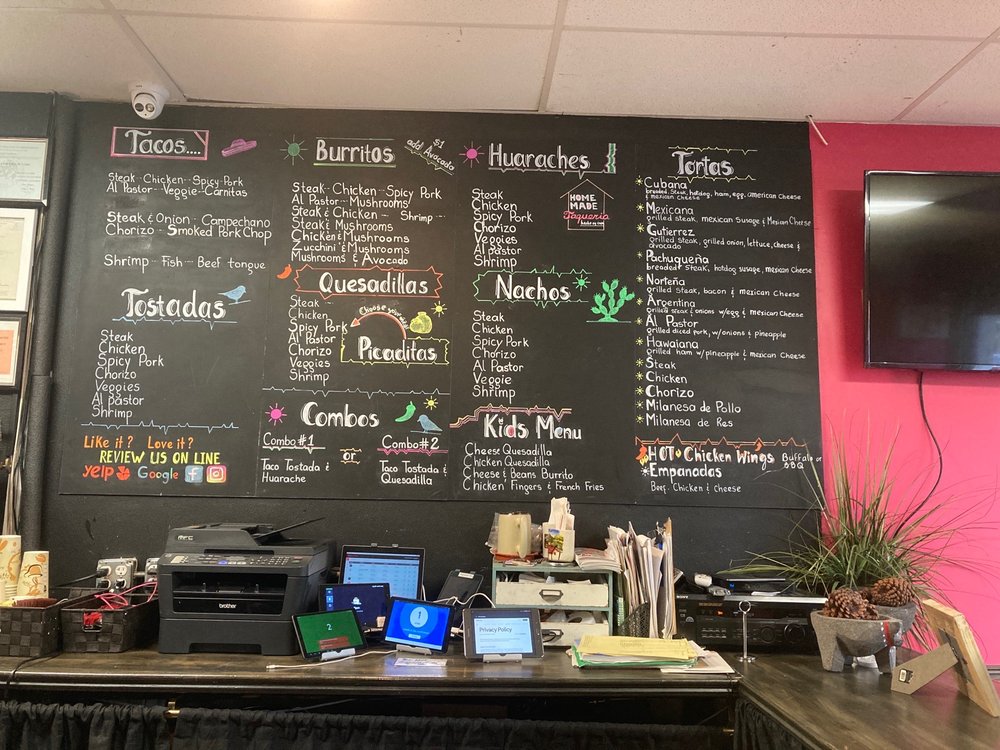 Tacos....
Steak - Chicken - Spicy Pork
Al Pastor - Veggie - Carnitas
Steak & Onion - Campechano
Chorizo - Smoked Pork Chop
Shrimp - Fish - Beef tongue
Tostadas
Steak
Chicken
Spicy Pork
Chorizo
Veggies
Al pastor
Shrimp
Like it? Love it?
REVIEW US ON LINE
yelp Google f
Burritos
$1
add Avocado
Steak - Chicken - Spicy Pork
Al Pastor - Mushrooms
Steak & Chicken - Shrimp
Steak & Mushrooms
Chicken & Mushrooms
Zucchini & Mushrooms
Mushrooms & Avocado
Quesadillas
Steak
Chicken
Spicy Pork
Al Pastor
Chorizo
Veggies
Shrimp
Choose your
Picaditas
Combos
Combo #1
or
Combo #2
Taco Tostada &
Huarache
Taco Tostada &
Quesadilla
Huaraches
Steak
Chicken
Spicy Pork
Chorizo
Veggies
Al pastor
Shrimp
HOME
MADE
Taqueria
Nachos
Steak
Chicken
Spicy Pork
Chorizo
Al Pastor
Veggie
Shrimp
Kids Menu
Cheese Quesadilla
Chicken Quesadilla
Cheese & Beans Burrito
Chicken Fingers & French Fries
Tortas
Cubana
breaded steak, hotdog, ham, egg, american Cheese
& mexican Cheese
Mexicana
grilled steak, mexican Susage & Mexican Cheese
Gutierrez
grilled steak, grilled onion, lettuce, cheese &
avocado
Pachuqueña
breaded steak, hotdog susage, mexican Cheese
Norteña
grilled steak, bacon & mexican Cheese
Argentina
grilled steak & onions w/egg & mexican Cheese
Al Pastor
grilled diced pork, w/onions & pineapple
Hawaiana
grilled ham w/pineapple & mexican Cheese
Steak
Chicken
Chorizo
Milanesa de Pollo
Milanesa de Res
HOT Chicken Wings Buffalo or
BBQ
Empanadas
Beef - Chicken & Cheese
MFC
brother
2
!
Privacy Policy
SONY